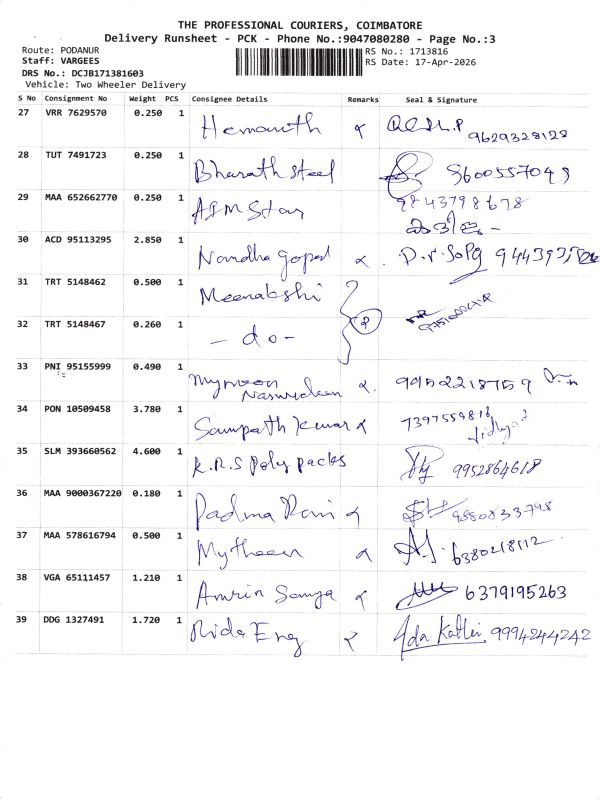 THE PROFESSIONAL COURIERS, COIMBATORE
Delivery Runsheet - PCK - Phone No.:9047080280 - Page No.:3
Route: PODANUR RS No.: 1713816
Staff: VARGEES RS Date: 17-Apr-2026
DRS No.: DCJB171381603
Vehicle: Two Wheeler Delivery
S No Consignment No Weight PCS Consignee Details Remarks Seal & Signature
27 VRR 7629570 0.250 1 Hemanth 9629328128
28 TUT 7491723 0.250 1 Bharath Steel 8600557049
29 MAA 652662770 0.250 1 AIM Star 9843798678
30 ACD 95113295 2.850 1 Nandha gopal
31 TRT 5148462 0.500 1 Meenakshi
32 TRT 5148467 0.260 1 - do -
33 PNI 95155999 0.490 1 9952218759
34 PON 10509458 3.780 1 Sampath Kumar 7397559816
35 SLM 393660562 4.600 1 K.R.S Poly packs 9952864618
36 MAA 9000367220 0.180 1 Padma Rani 9880833798
37 MAA 578616794 0.500 1 Mytheen 6380218112
38 VGA 65111457 1.210 1 Amrin Soniya 6379195263
39 DDG 1327491 1.720 1 Rida Eng 9994244242